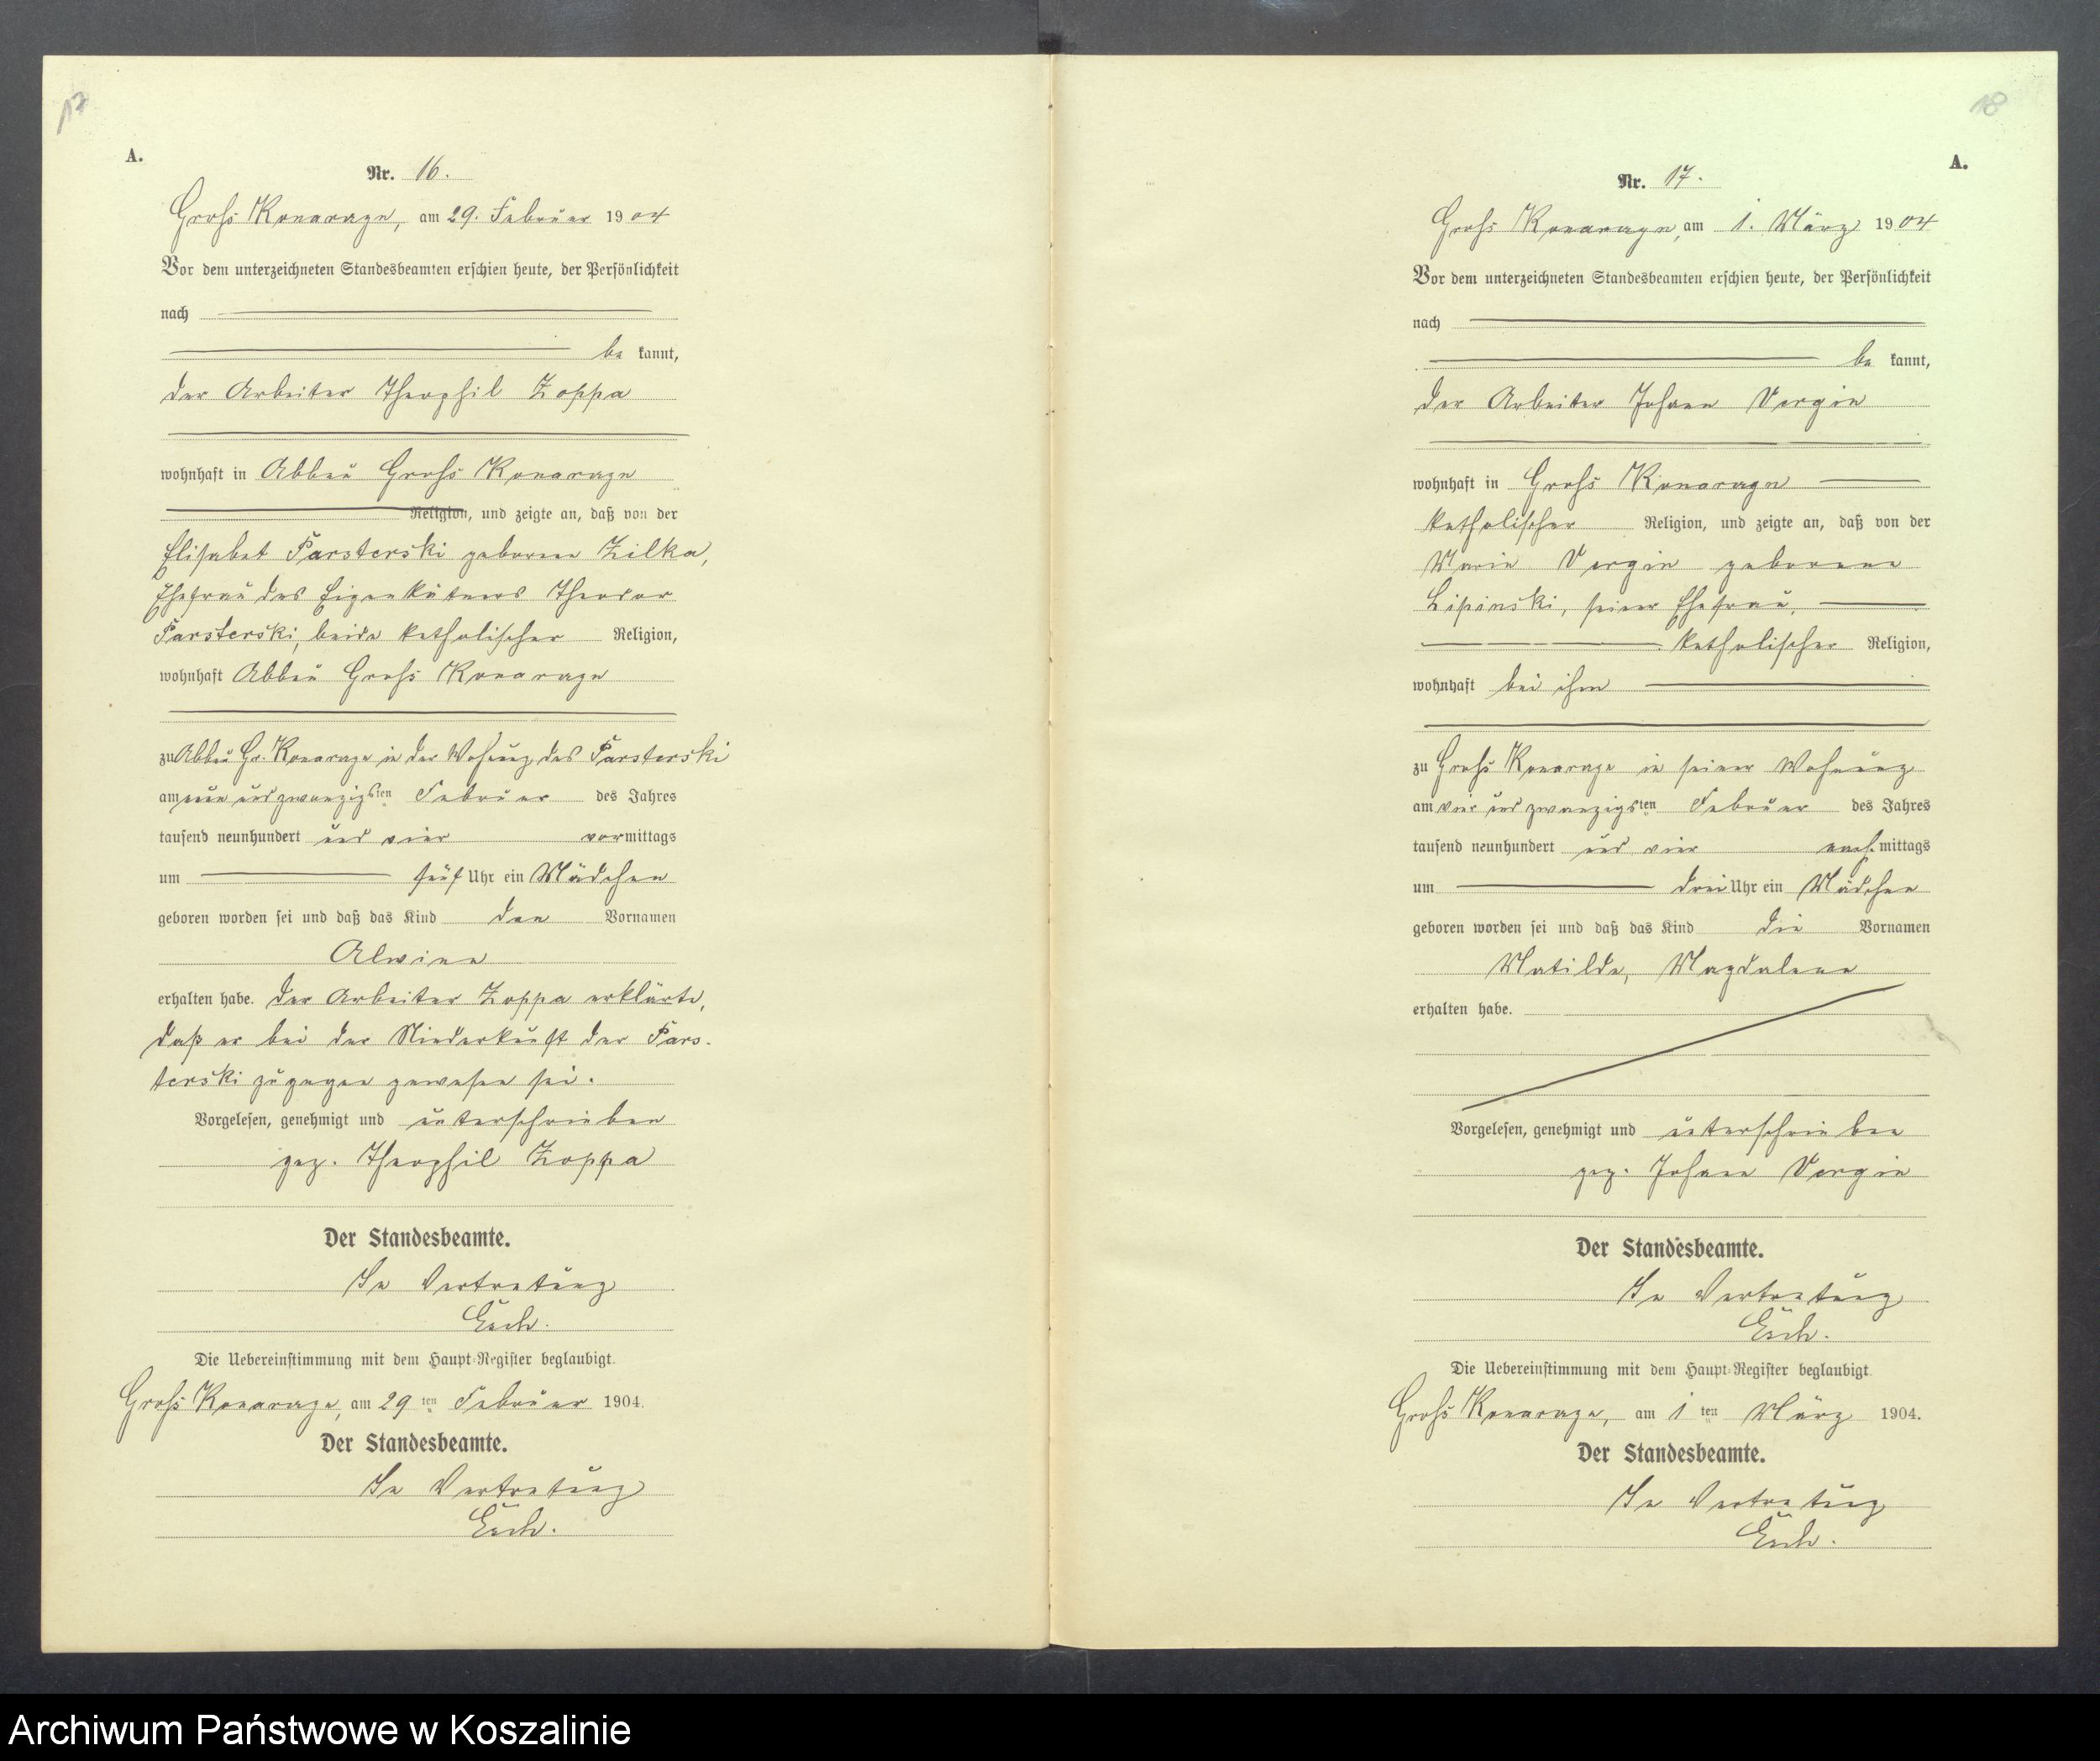 17
A.
Nr. 16.
Groß Konarzyn, am 29. Februar 1904
Vor dem unterzeichneten Standesbeamten erschien heute, der Persönlichkeit
nach
be kannt,
der Arbeiter Theophil Zoppa
wohnhaft in Abbau Groß Konarzyn
Religion, und zeigte an, daß von der
Elisabet Parsterski geborene Zilka,
Ehefrau des Eigenkätners Theodor
Parsterski, beide katholischer Religion,
wohnhaft Abbau Groß Konarzyn
zu Abbau Gr. Konarzyn in der Wohnung des Parsterski
am neun und zwanzigsten Februar des Jahres
tausend neunhundert und vier vormittags
um fünf Uhr ein Mädchen
geboren worden sei und daß das Kind den Vornamen
Alwine
erhalten habe. Der Arbeiter Zoppa erklärte,
daß er bei der Niederkunft der Pars-
terski zugegen gewesen sei.
Vorgelesen, genehmigt und unterschrieben
gez. Theophil Zoppa
Der Standesbeamte.
In Vertretung
Die Uebereinstimmung mit dem Haupt-Register beglaubigt.
Groß Konarzyn, am 29ten Februar 1904.
Der Standesbeamte.
In Vertretung
18
A.
Nr. 17.
Groß Konarzyn, am 1. März 1904
Vor dem unterzeichneten Standesbeamten erschien heute, der Persönlichkeit
nach
be kannt,
der Arbeiter Johann Vergin
wohnhaft in Groß Konarzyn
katholischer Religion, und zeigte an, daß von der
Marie Vergin geborene
Lipinski, seiner Ehefrau,
katholischer Religion,
wohnhaft bei ihm
zu Groß Konarzyn in seiner Wohnung
am vier und zwanzigsten Februar des Jahres
tausend neunhundert und vier nachmittags
um drei Uhr ein Mädchen
geboren worden sei und daß das Kind die Vornamen
Matilde, Magdalene
erhalten habe.
Vorgelesen, genehmigt und unterschrieben
gez. Johann Vergin
Der Standesbeamte.
In Vertretung
Die Uebereinstimmung mit dem Haupt-Register beglaubigt.
Groß Konarzyn, am 1ten März 1904.
Der Standesbeamte.
In Vertretung
Archiwum Państwowe w Koszalinie